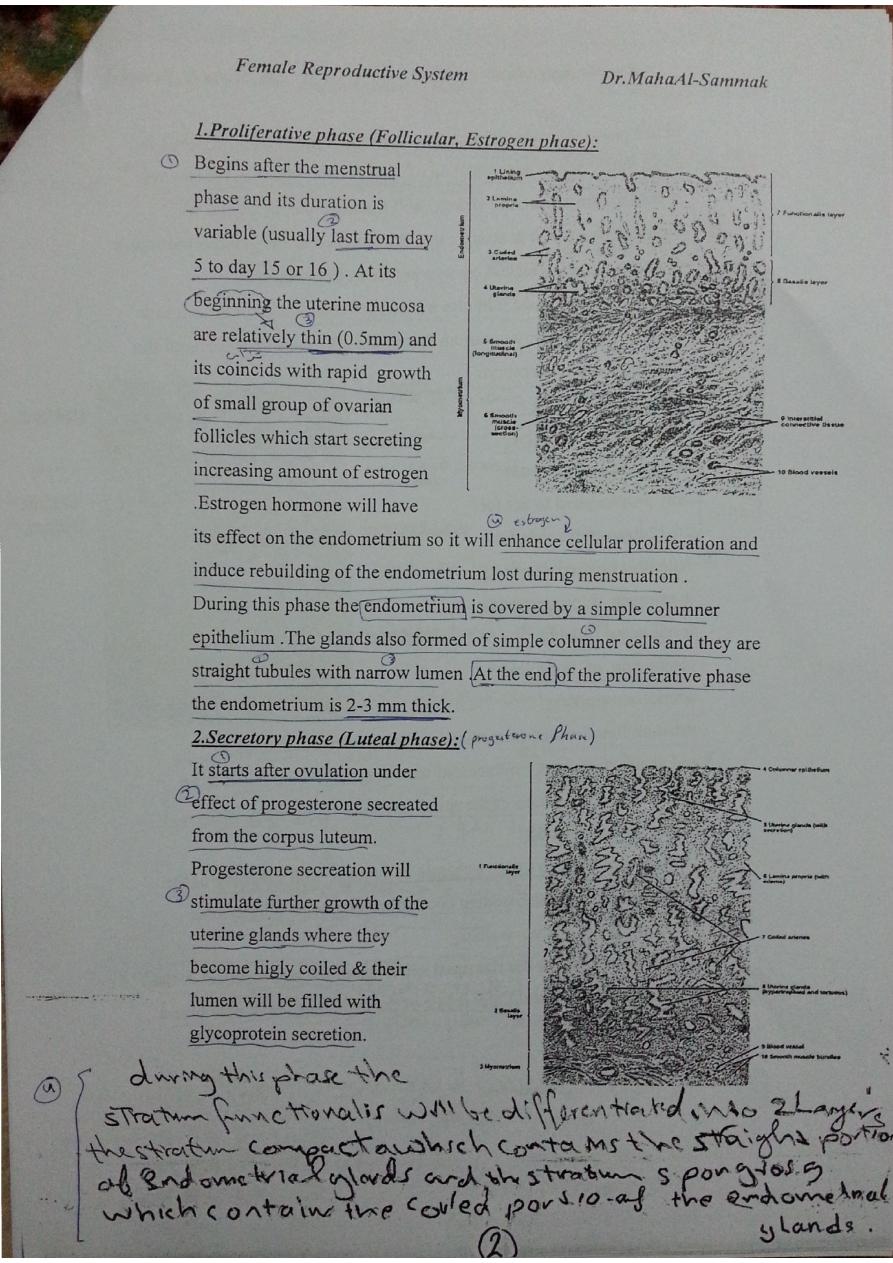 Female Reproductive System
Dr.MahaAl-Sammak
1.Proliferative phase (Follicular, Estrogen phase):
① Begins after the menstrual
phase and its duration is
②
variable (usually last from day
5 to day 15 or 16 ) . At its
beginning the uterine mucosa
③
are relatively thin (0.5mm) and
its coincids with rapid growth
of small group of ovarian
follicles which start secreting
increasing amount of estrogen
.Estrogen hormone will have
estrogen
its effect on the endometrium so it will enhance cellular proliferation and
induce rebuilding of the endometrium lost during menstruation .
During this phase the endometrium is covered by a simple columner
epithelium .The glands also formed of simple columner cells and they are
straight tubules with narrow lumen .At the end of the proliferative phase
the endometrium is 2-3 mm thick.
1 Lining
epithelium
2 Lamina
propria
3 Coiled
arteries
4 Uterine
glands
5 Smooth
muscle
(longitudinal)
6 Smooth
muscle
(cross-
section)
Endometrium
Myometrium
7 Functionalis layer
8 Basalis layer
9 Interstitial
connective tissue
10 Blood vessels
2.Secretory phase (Luteal phase):( progesterone Phase)
①
It starts after ovulation under
② effect of progesterone secreated
from the corpus luteum.
Progesterone secreation will
③ stimulate further growth of the
uterine glands where they
become higly coiled & their
lumen will be filled with
glycoprotein secretion.
1 Functionalis
layer
2 Basalis
layer
3 Myometrium
4 Columnar epithelium
5 Uterine glands (with
secretion)
6 Lamina propria (with
edema)
7 Coiled arteries
8 Uterine glands
(hypertrophied and tortuous)
9 Blood vessel
10 Smooth muscle bundles
during this phase the
stratum functionalis will be differentiated into 2 Layers
the stratum compacta which contains the staight portion
of Endometrial glands and the stratum spongiosa
which contain the coiled of the endometrial
glands.
2